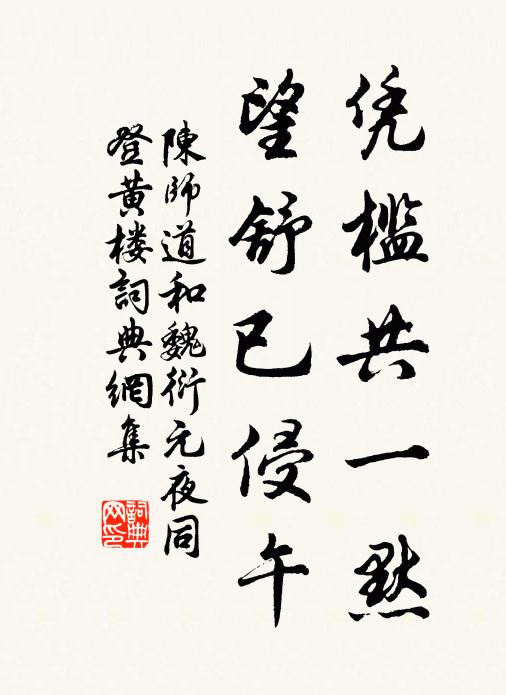 凭槛共一默
望舒已侵午
陳師道和魏衍元夜同
登黄楼詞典網集
詞典
网印